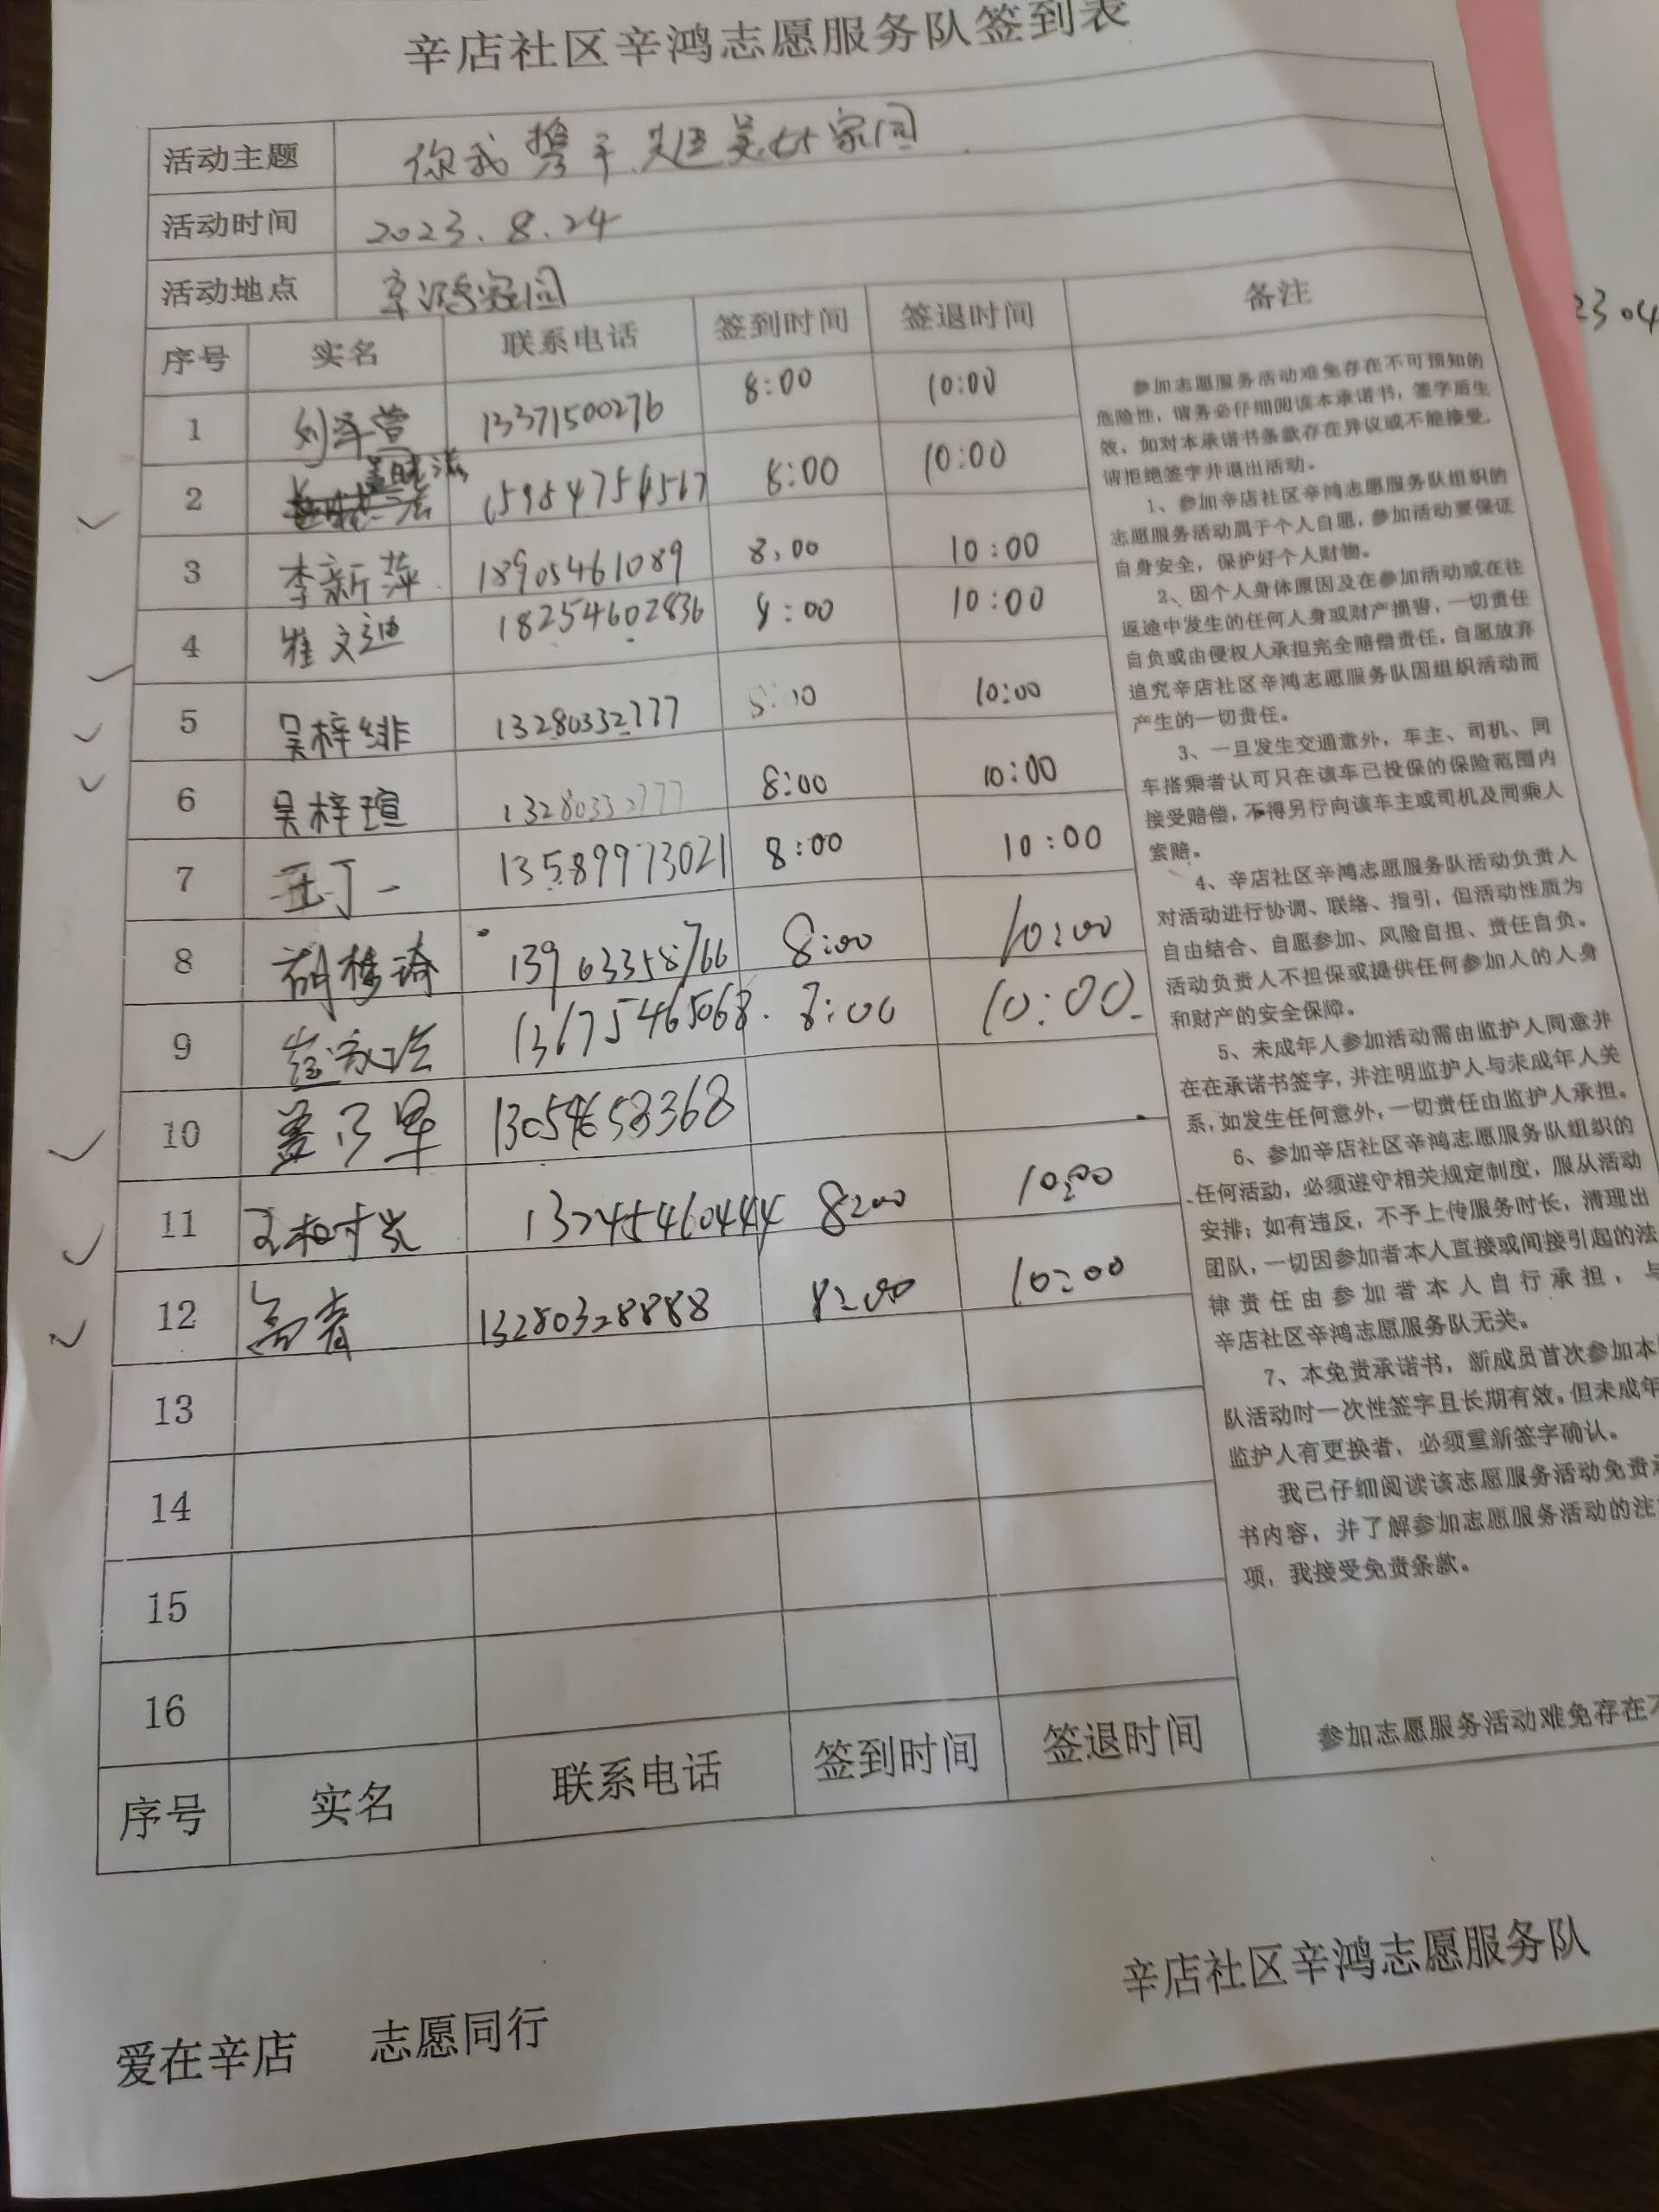 辛店社区辛鸿志愿服务队签到表
活动主题 你我携手 共建美好家园
活动时间 2023.8.24
活动地点 辛鸿家园
序号 实名 联系电话 签到时间 签退时间 备注
1 刘泽萱 13371500276 8:00 10:00
2 15954756567 8:00 10:00
3 李新萍 18905461089 8:00 10:00
4 崔文迪 18254602836 8:00 10:00
5 吴梓绯 13280332777 10:00
6 吴梓瑄 13280332777 8:00 10:00
7 王丁一 13589973021 8:00 10:00
8 胡梦琦 13963358766 8:00 10:00
9 13675465068 8:00 10:00
10 13054658368
11 13245460444 8:00 10:00
12 13280328888 8:00 10:00
13
14
15
16
序号 实名 联系电话 签到时间 签退时间
参加志愿服务活动难免存在不可预知的
危险性，请务必仔细阅读本承诺书，签字后生
效。如对本承诺书条款存在异议或不能接受，
请拒绝签字并退出活动。
1、参加辛店社区辛鸿志愿服务队组织的
志愿服务活动属于个人自愿，参加活动要保证
自身安全，保护好个人财物。
2、因个人身体原因及在参加活动或在往
返途中发生的任何人身或财产损害，一切责任
自负或由侵权人承担完全赔偿责任，自愿放弃
追究辛店社区辛鸿志愿服务队因组织活动而
产生的一切责任。
3、一旦发生交通意外，车主、司机、同
车搭乘者认可只在该车已投保的保险范围内
接受赔偿，不得另行向该车主或司机及同乘人
索赔。
4、辛店社区辛鸿志愿服务队活动负责人
对活动进行协调、联络、指引，但活动性质为
自由结合、自愿参加、风险自担、责任自负。
活动负责人不担保或提供任何参加人的人身
和财产的安全保障。
5、未成年人参加活动需由监护人同意并
在在承诺书签字，并注明监护人与未成年人关
系，如发生任何意外，一切责任由监护人承担。
6、参加辛店社区辛鸿志愿服务队组织的
任何活动，必须遵守相关规定制度，服从活动
安排；如有违反，不予上传服务时长，清理出
团队，一切因参加者本人直接或间接引起的法
律责任由参加者本人自行承担，与
辛店社区辛鸿志愿服务队无关。
7、本免责承诺书，新成员首次参加本
队活动时一次性签字且长期有效。但未成年
监护人有更换者，必须重新签字确认。
我已仔细阅读该志愿服务活动免责
书内容，并了解参加志愿服务活动的注
项，我接受免责条款。
参加志愿服务活动难免存在
辛店社区辛鸿志愿服务队
爱在辛店 志愿同行